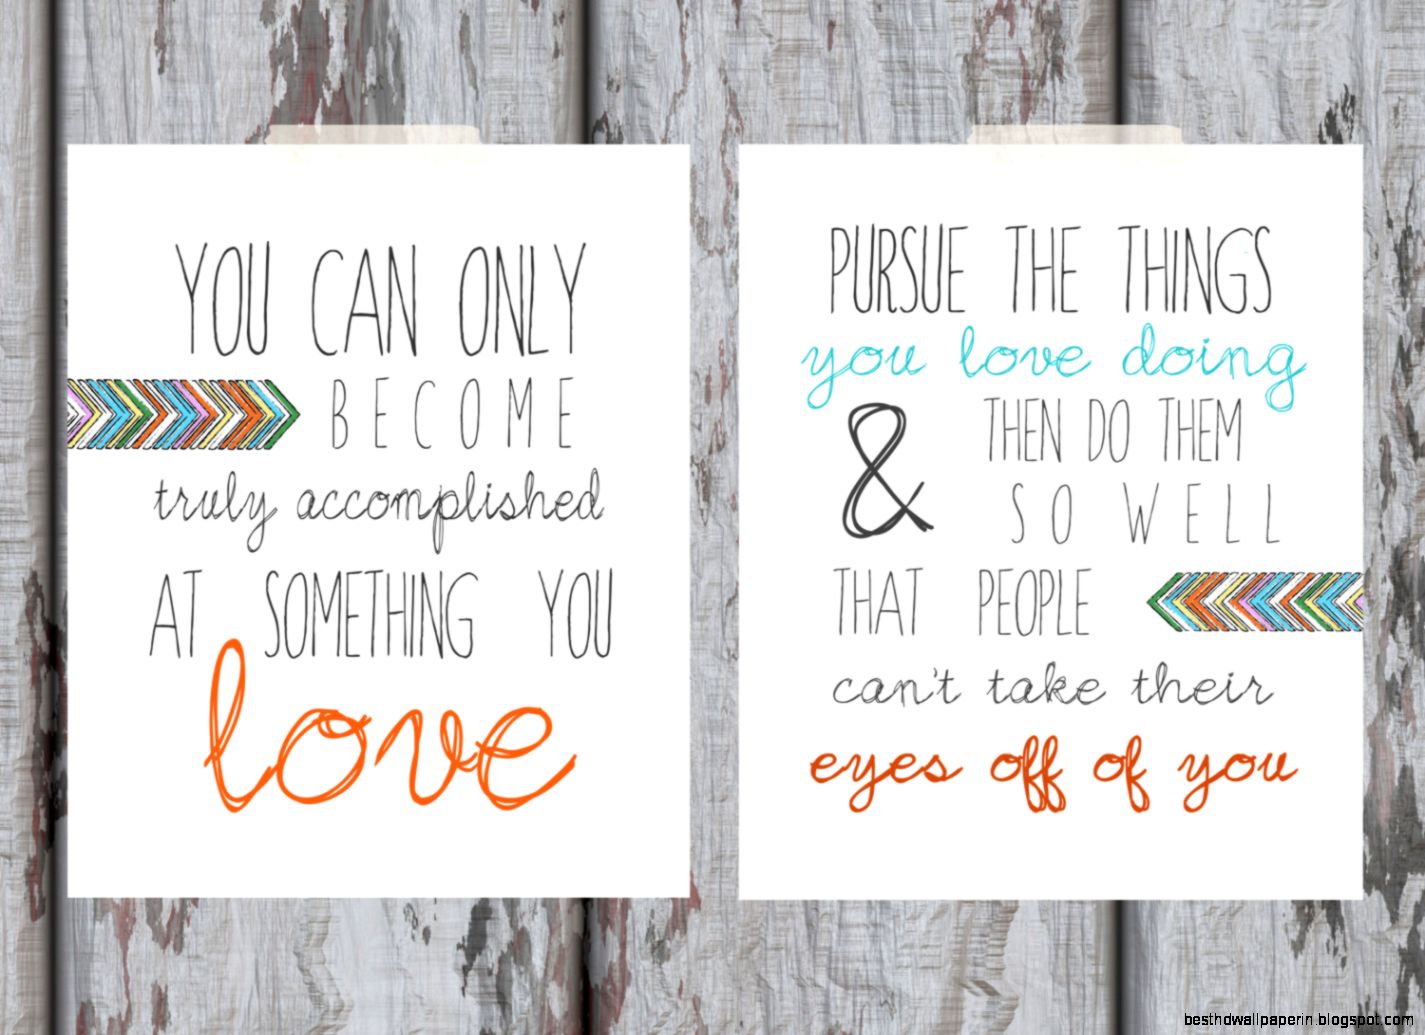 YOU CAN ONLY
BECOME
truly accomplished
AT SOMETHING YOU
love
PURSUE THE THINGS
you love doing
& THEN DO THEM
SO WELL
THAT PEOPLE
can't take their
eyes off of you
besthdwallpaperin.blogspot.com